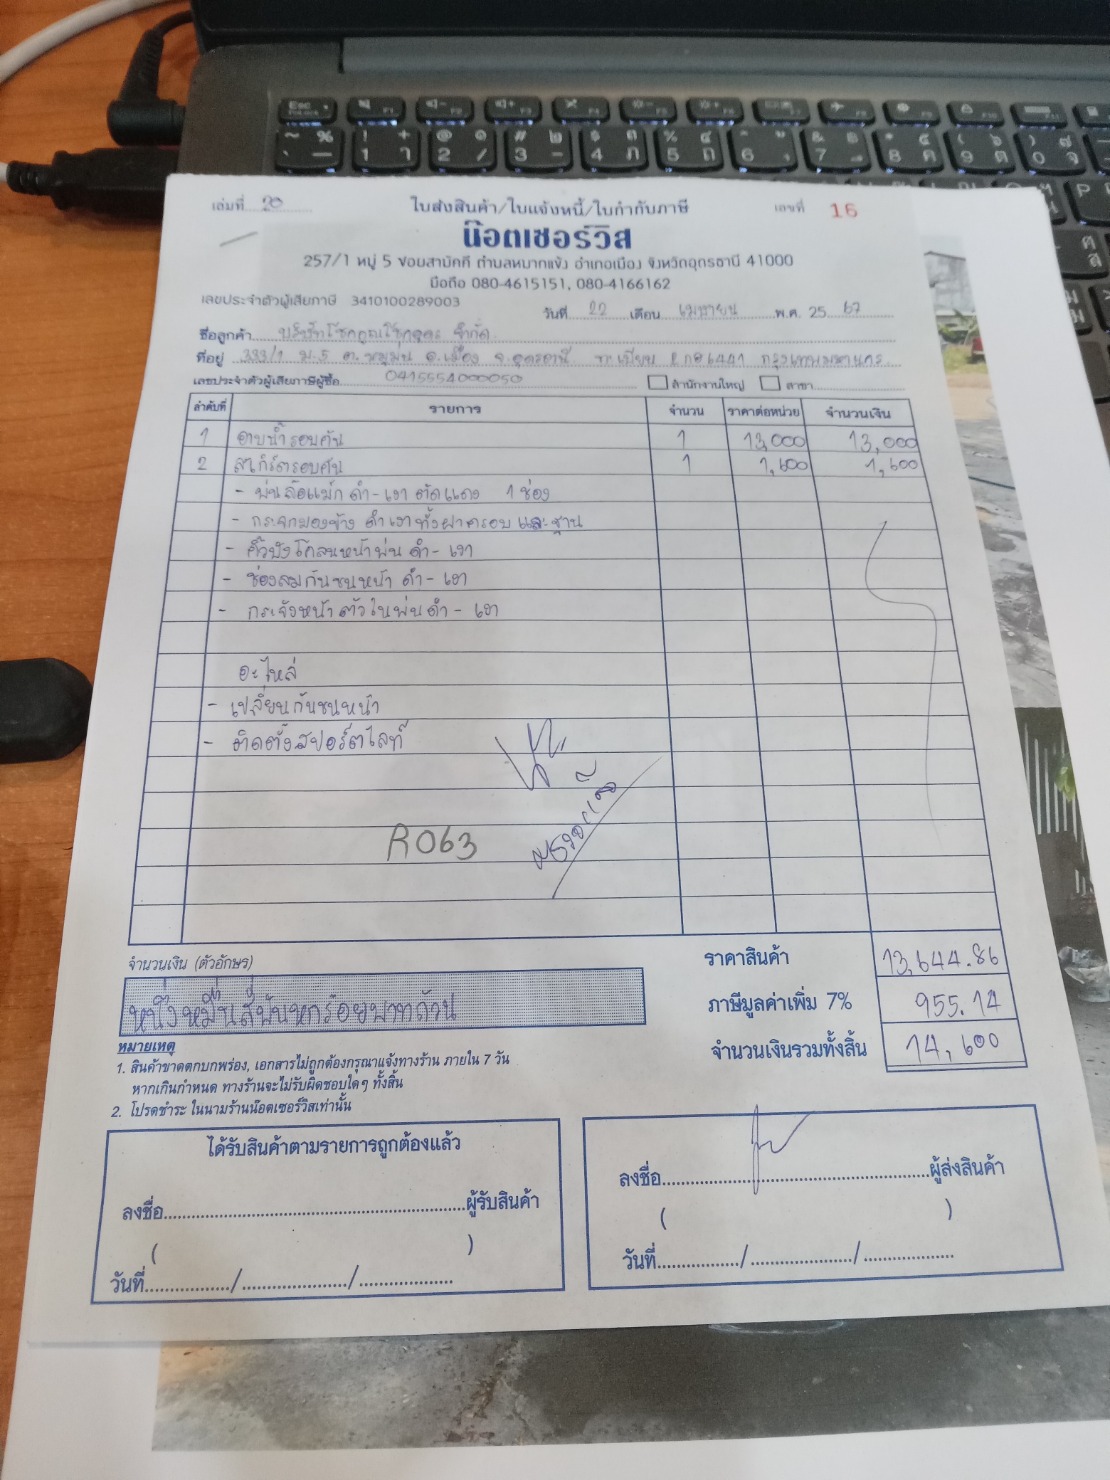 เล่มที่ 20
ใบส่งสินค้า/ใบแจ้งหนี้/ใบกำกับภาษี
เลขที่ 16
น๊อตเซอร์วิส
257/1 หมู่ 5 ซอยสามัคคี ตำบลหมากแข้ง อำเภอเมือง จังหวัดอุดรธานี 41000
มือถือ 080-4615151, 080-4166162
เลขประจำตัวผู้เสียภาษี 3410100289003
วันที่ 22 เดือน เมษายน พ.ศ. 25 67
ชื่อลูกค้า บริษัทโชคคูณโชคอุดร จำกัด
ที่อยู่ 333/1 ม.5 ต.หมูม่น อ.เมือง จ.อุดรธานี ทะเบียน กรุงเทพมหานคร
เลขประจำตัวผู้เสียภาษีผู้ซื้อ 0415554000050 สำนักงานใหญ่ สาขา
ลำดับที่ รายการ จำนวน ราคาต่อหน่วย จำนวนเงิน
1 อาบน้ำรอบคัน 1 13,000 13,000
2 สเกิร์ตรอบคัน 1 1,600 1,600
- พ่นล้อแม็ก ดำ-เงา ตัดแดง 1 ช่อง
- กระจกมองข้าง ดำเงาทั้งฝาครอบ และ ฐาน
- คิ้วบังโคลนหน้าพ่น ดำ - เงา
- ช่องลมกันชนหน้า ดำ - เงา
- กระจังหน้า ตัวในพ่นดำ - เงา
อะไหล่
- เปลี่ยนกันชนหน้า
- ติดตั้งสปอร์ตไลท์
R063
จำนวนเงิน (ตัวอักษร)
หนึ่งหมื่นสี่พันหกร้อยบาทถ้วน
ราคาสินค้า 13,644.86
ภาษีมูลค่าเพิ่ม 7% 955.14
จำนวนเงินรวมทั้งสิ้น 14,600
หมายเหตุ
1. สินค้าขาดตกบกพร่อง, เอกสารไม่ถูกต้องกรุณาแจ้งทางร้าน ภายใน 7 วัน
หากเกินกำหนด ทางร้านจะไม่รับผิดชอบใดๆ ทั้งสิ้น
2. โปรดชำระ ในนามร้านน๊อตเซอร์วิสเท่านั้น
ได้รับสินค้าตามรายการถูกต้องแล้ว
ลงชื่อ ผู้รับสินค้า
( )
วันที่ / /
ลงชื่อ ผู้ส่งสินค้า
( )
วันที่ / /